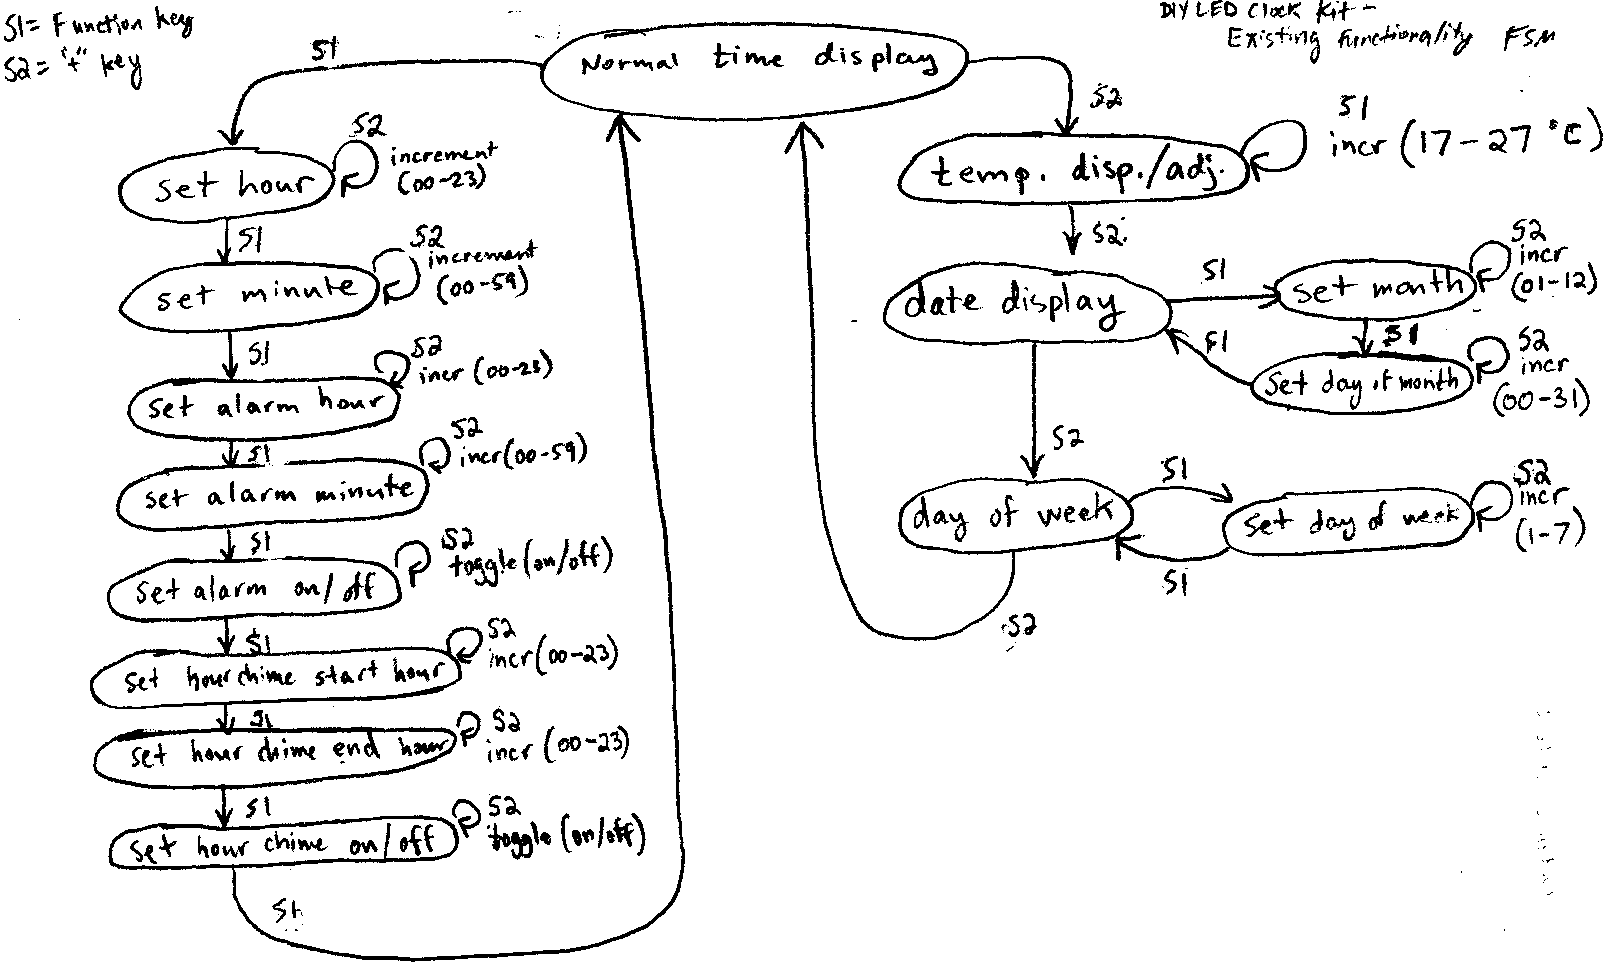 S1= Function key
S2= "+" key
DIY LED Clock Kit -
Existing Functionality FSM
Normal time display
S1
S2
set hour
S2
increment
(00-23)
S1
set minute
S2
increment
(00-59)
S1
set alarm hour
S2
incr (00-23)
S1
set alarm minute
S2
incr (00-59)
S1
set alarm on/off
S2
toggle (on/off)
S1
set hour chime start hour
S2
incr (00-23)
S1
set hour chime end hour
S2
incr (00-23)
S1
set hour chime on/off
S2
toggle (on/off)
S1
temp. disp./adj.
S1
incr (17-27 °C)
S2
date display
S1
set month
S2
incr
(01-12)
S1
S1
set day of month
S2
incr
(00-31)
S2
day of week
S1
set day of week
S2
incr
(1-7)
S1
S2